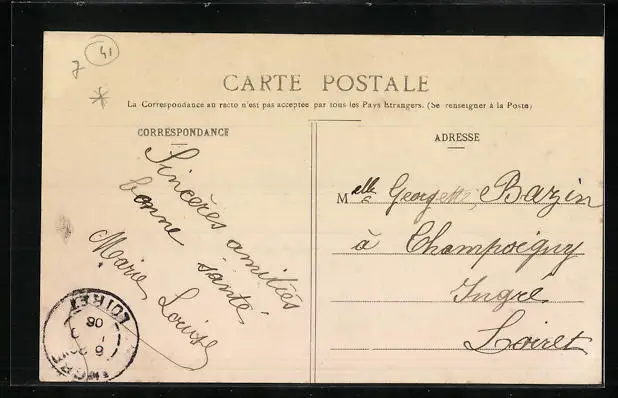 7
41
CARTE POSTALE
La Correspondance au recto n'est pas acceptée par tous les Pays Étrangers. (Se renseigner à la Poste)
CORRESPONDANCE
Sincères amitiés
bonne santé.
Marie Louise
ADRESSE
Melle Georgette Bazin
à Champoigny
Ingré
Loiret
LOIRET
06